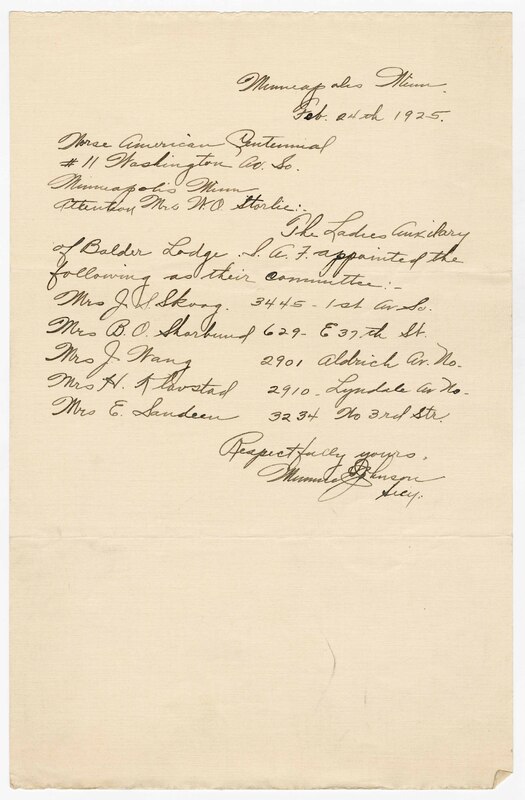 Minneapolis Minn.
Feb. 24th 1925.
Norse American Centennial
# 11 Washington Av. So.
Minneapolis Minn
Attention Mrs W.O. Storlie:-
The Ladies Auxilary
of Balder Lodge. S. A. F. appointed the
following as their committee:-
Mrs J. S Skoog. 3445 - 1st Av. So.
Mrs B. O. 629 - E 37th St.
Mrs J. Wang 2901 Aldrich Av. No-
Mrs H. Klavstad 2910 - Lyndale Av No-
Mrs E. Sandeen 3234 No 3rd Str.
Respectfully yours,
Minnie Johnson
Secy.